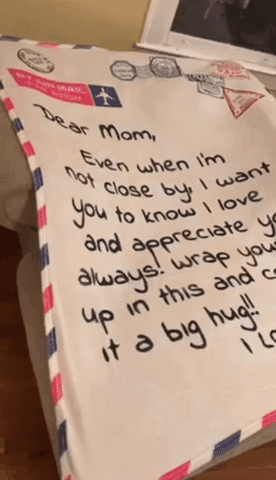 Dear Mom,
Even when I'm
not close by, I want
you to know I love
and appreciate
always. wrap you
up in this and
it a big hug!!
I